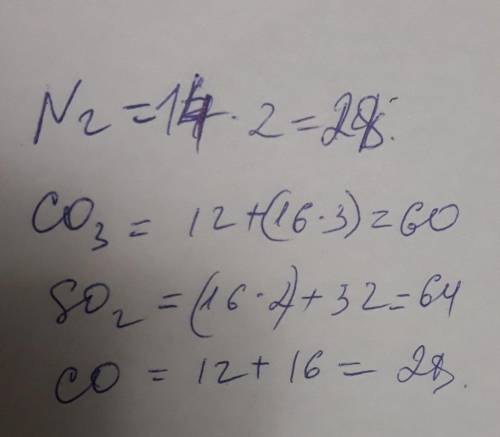 N₂ = 14 · 2 = 28.
CO₃ = 12 + (16 · 3) = 60
SO₂ = (16 · 2) + 32 = 64
CO = 12 + 16 = 28.